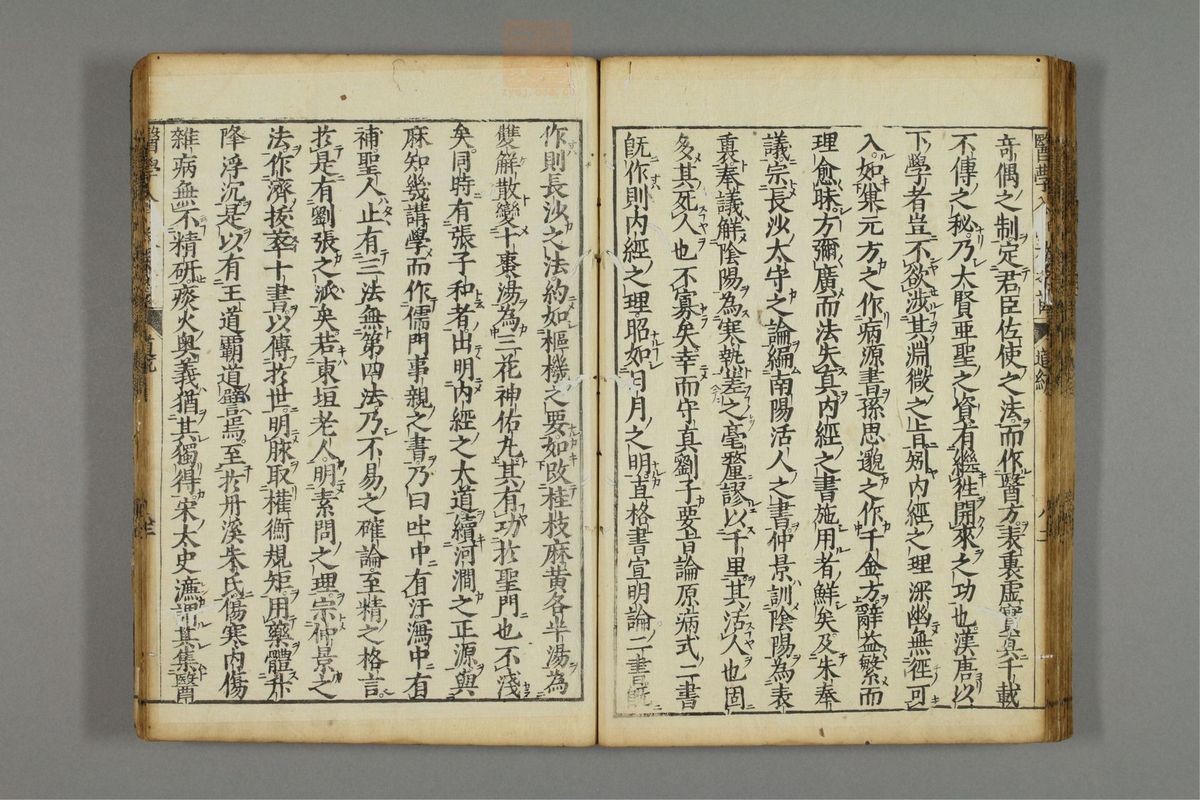 奇偶之制定君臣佐使之法而作醫方表裏虛實真千載
不傳之秘乃大賢亜聖之資有繼徃開來之功也漢唐以
下學者豈不欲涉其淵微之旨矧内經之理深幽無徑可
入如巢元方之作病源書孫思邈之作千金方辭益繁而
理愈昧方彌廣而法失真内經之書施用者鮮矣及朱奉
議宗長沙太守之論編南陽活人之書仲景訓陰陽為表
裏奉議解陰陽為寒熱差之毫釐謬以千里其活人也固
多其死人也不寡矣幸而守真劉子要旨論原病式二書
既作則内經之理昭如日月之明直格書宣明論二書既
作則長沙之法約如樞機之要如改桂枝麻黄各半湯為
雙解散變十棗湯為三花神佑丸其有功於聖門也不淺
矣同時有張子和者出明内經之太道續河澗之正源與
麻知幾講學而作儒門事親之書乃曰吐中有汗瀉中有
補聖人止有三法無第四法乃不易之確論至精之格言
於是有劉張之派矣若東垣老人明素問之理宗仲景之
法作濟拔萃十書以傳於世明脉取權衡規矩用藥體升
降浮沉是以有王道覇道譬焉至於丹溪朱氏傷寒内傷
雜病無不精研痰火奥義猶其獨得宋太史濂謂其集醫
醫學入
道統
醫學入
道統